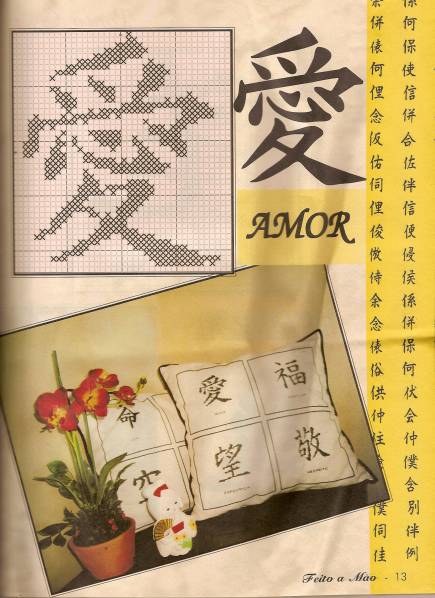 愛
AMOR
何保使信併合佐伴信便侵侯係併保何伏会仲僕含別伴例
併俵何俚念仮佑伺俚俊倣侍余念俵俗供仲住
僕伺佳
命
愛
福
望
敬
Feito a Mão - 13